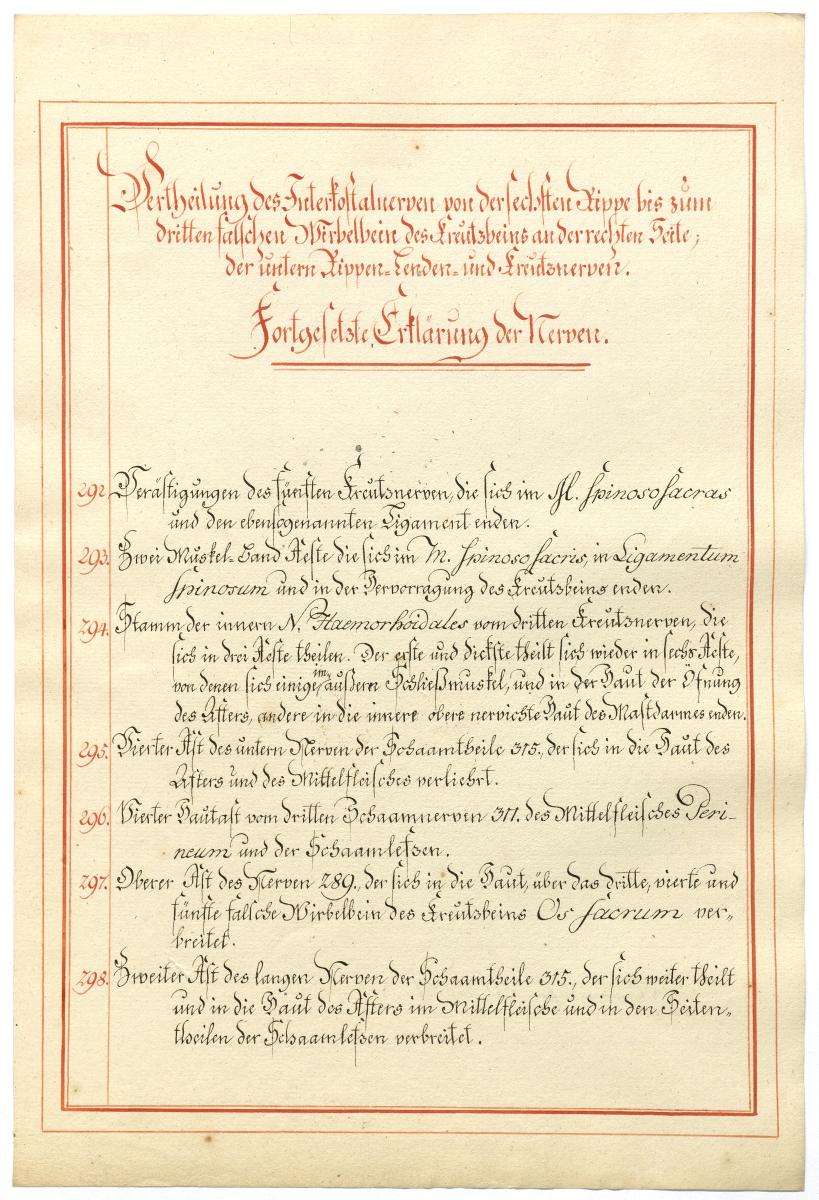 Vertheilung des Interkostalnerven von der sechsten Rippe bis zum
dritten falschen Wirbelbein des Kreutzbeins an der rechten Seite;
der untern Rippen-Lenden- und Kreutznerven.
Fortgesetzte Erklärung der Nerven.
292. Verästigungen des fünften Kreutznerven, die sich im M. Spinoso sacras
und den ebensogenannten Ligament enden.
293. Zwei Muskel-Band Aeste die sich im M. Spinoso sacris, in Ligamentum
Spinosum und in der Hervorragung des Kreutzbeins enden.
294. Stamm der innern N. Haemorhoidales vom dritten Kreutznerven, die
sich in drei Aeste theilen. Der erste und dickste theilt sich wieder in sechs Aeste,
von denen sich einige im äußern Schließmuskel, und in der Haut der Öfnung
des Afters, andere in die innere obere nervichte Haut des Mastdarmes enden.
295. Vierter Ast des untern Nerven der Schaamtheile 315., der sich in die Haut des
Afters und des Mittelfleisches verliehrt.
296. Vierter Hautast vom dritten Schaamnerven 311. des Mittelfleisches Peri-
neum und der Schaamlefzen.
297. Oberer Ast des Nerven 289., der sich in die Haut, über das dritte, vierte und
fünfte falsche Wirbelbein des Kreutzbeins Os sacrum ver-
breitet.
298. Zweiter Ast des langen Nerven der Schaamtheile 315., der sich weiter theilt
und in die Haut des Afters im Mittelfleische und in den Seiten-
theilen der Schaamlefzen verbreitet.